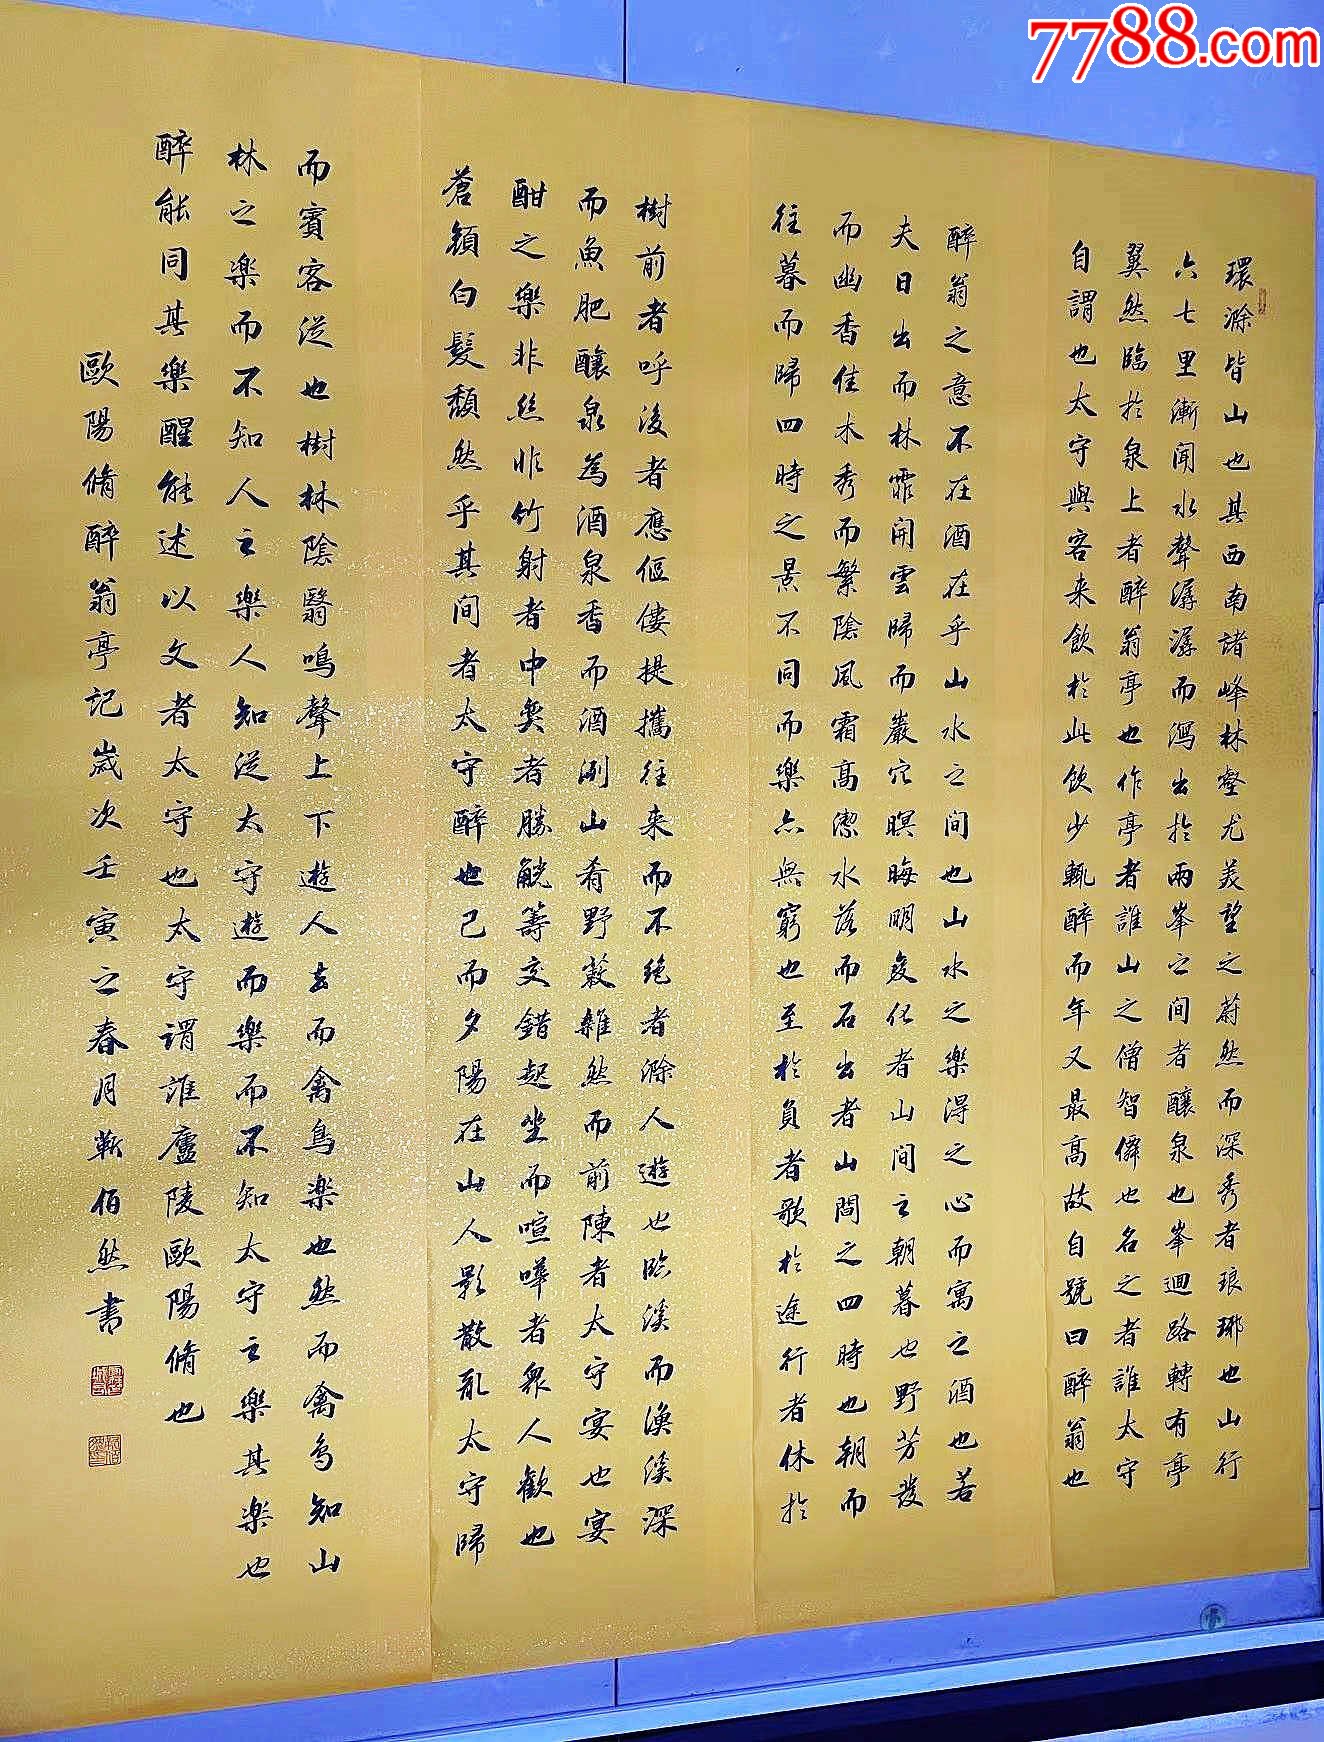 7788.com
環滁皆山也其西南諸峰林壑尤美望之蔚然而深秀者琅琊也山行
六七里漸聞水聲潺潺而瀉出於兩峯之間者釀泉也峯迴路轉有亭
翼然臨於泉上者醉翁亭也作亭者誰山之僧智僊也名之者誰太守
自謂也太守與客来飲於此飲少輒醉而年又最高故自號曰醉翁也
醉翁之意不在酒在乎山水之间也山水之樂得之心而寓之酒也若
夫日出而林霏開雲歸而巖穴暝晦明変化者山间之朝暮也野芳发
而幽香佳木秀而繁陰風霜高潔水落而石出者山間之四時也朝而
往暮而歸四時之景不同而樂亦無窮也至於負者歌於途行者休於
樹前者呼後者應傴僂提攜往来而不絶者滁人遊也臨溪而漁溪深
而魚肥釀泉為酒泉香而酒洌山肴野蔌雜然而前陳者太守宴也宴
酣之樂非丝非竹射者中奕者勝觥籌交錯起坐而喧嘩者衆人歡也
蒼顔白髮頹然乎其间者太守醉也已而夕陽在山人影散亂太守歸
而賓客從也樹林陰翳鳴聲上下遊人去而禽鳥楽也然而禽鸟知山
林之楽而不知人之樂人知從太守遊而樂而不知太守之樂其楽也
醉能同其樂醒能述以文者太守也太守谓誰廬陵歐陽脩也
歐陽脩醉翁亭記歲次壬寅之春月靳佰然書